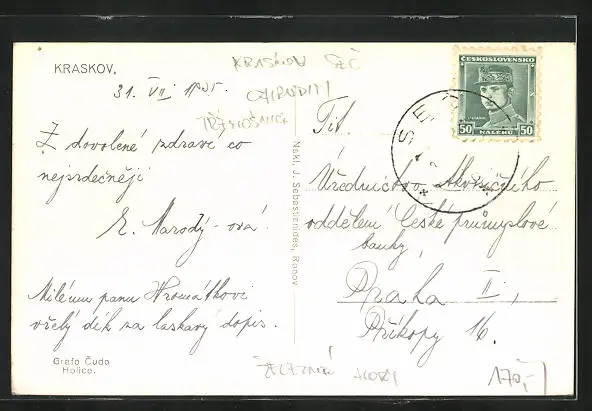 KRASKOV.
31. VII. 1935.
KRASKOV SEČ
CHRUDIM
TŘEMOŠNICE
Z dovolené zdraví co
nejsrdečněji
E. Marody - ová
Milému panu Hromátkovi
vřelý dík za laskavý dopis.
Grafo Čuda
Holice.
Nakl. J. Sebastianides, Ronov
ČESKOSLOVENSKO
50 HALÉŘŮ 50
SEČ
Tit.
Úřednictvo
oddělení České průmyslové
banky,
Praha II,
Příkopy 16.
ŽELEZNÉ HORY
170,-